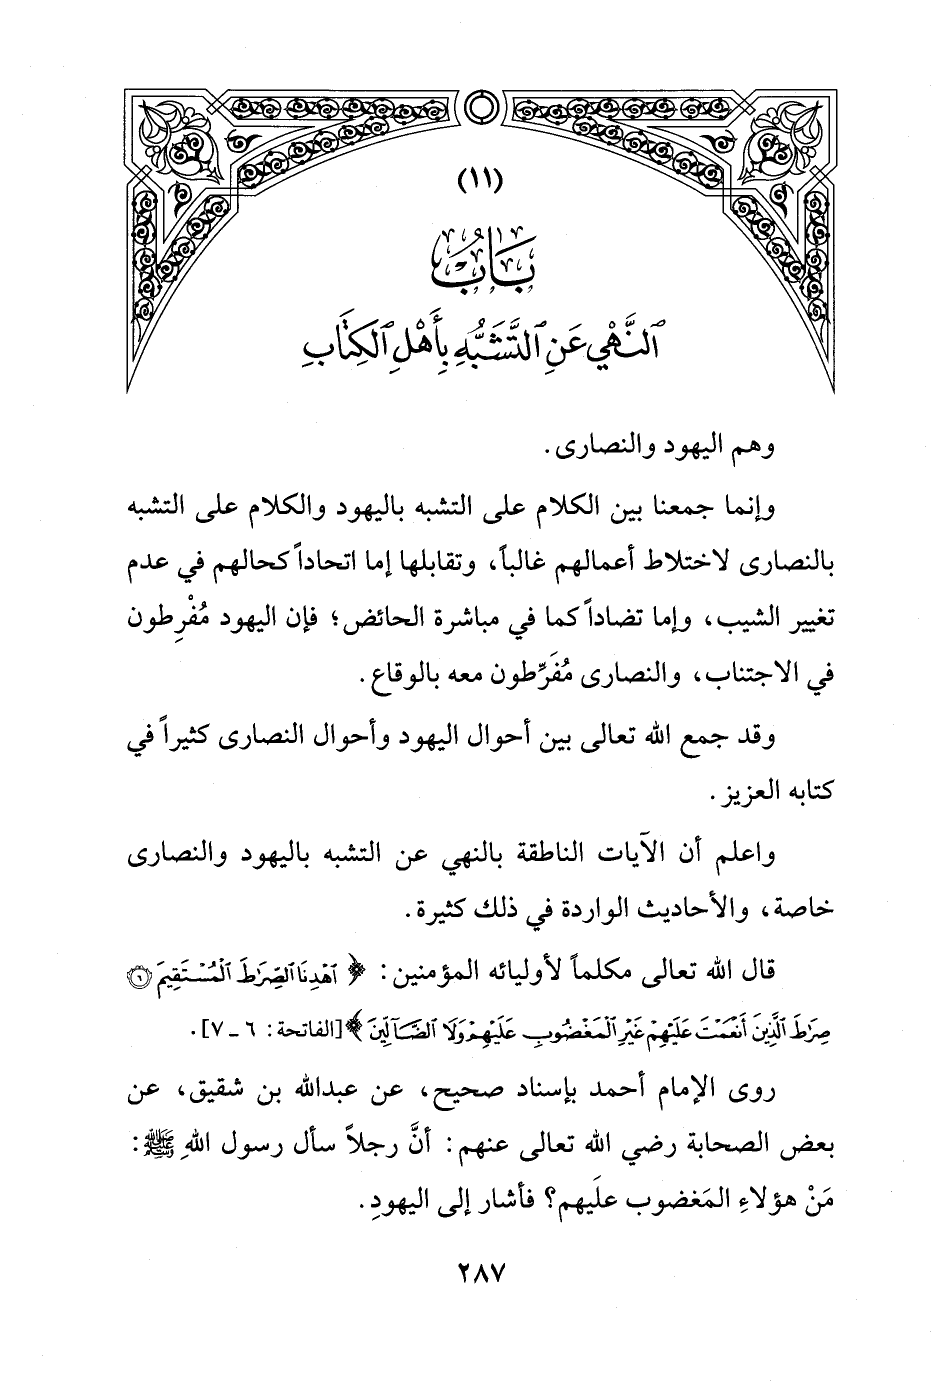 (١١)
بَابُ
النَّهْيِ عَنِ التَّشَبُّهِ بِأَهْلِ الكِتَابِ
وهم اليهود والنصارى.
وإنما جمعنا بين الكلام على التشبه باليهود والكلام على التشبه
بالنصارى لاختلاط أعمالهم غالباً، وتقابلها إما اتحاداً كحالهم في عدم
تغيير الشيب، وإما تضاداً كما في مباشرة الحائض؛ فإن اليهود مُفْرِطون
في الاجتناب، والنصارى مُفَرِّطون معه بالوقاع.
وقد جمع الله تعالى بين أحوال اليهود وأحوال النصارى كثيراً في
كتابه العزيز.
واعلم أن الآيات الناطقة بالنهي عن التشبه باليهود والنصارى
خاصة، والأحاديث الواردة في ذلك كثيرة.
قال الله تعالى مكلماً لأوليائه المؤمنين: ﴿ٱهْدِنَا ٱلصِّرَٰطَ ٱلْمُسْتَقِيمَ ۝٦
صِرَٰطَ ٱلَّذِينَ أَنْعَمْتَ عَلَيْهِمْ غَيْرِ ٱلْمَغْضُوبِ عَلَيْهِمْ وَلَا ٱلضَّآلِّينَ﴾ [الفاتحة: ٦ ـ ٧].
روى الإمام أحمد بإسناد صحيح، عن عبدالله بن شقيق، عن
بعض الصحابة رضي الله تعالى عنهم: أنَّ رجلاً سأل رسول اللهِ ﷺ:
مَنْ هؤلاءِ المَغضوب علَيهم؟ فأشار إلى اليهودِ.
٢٨٧